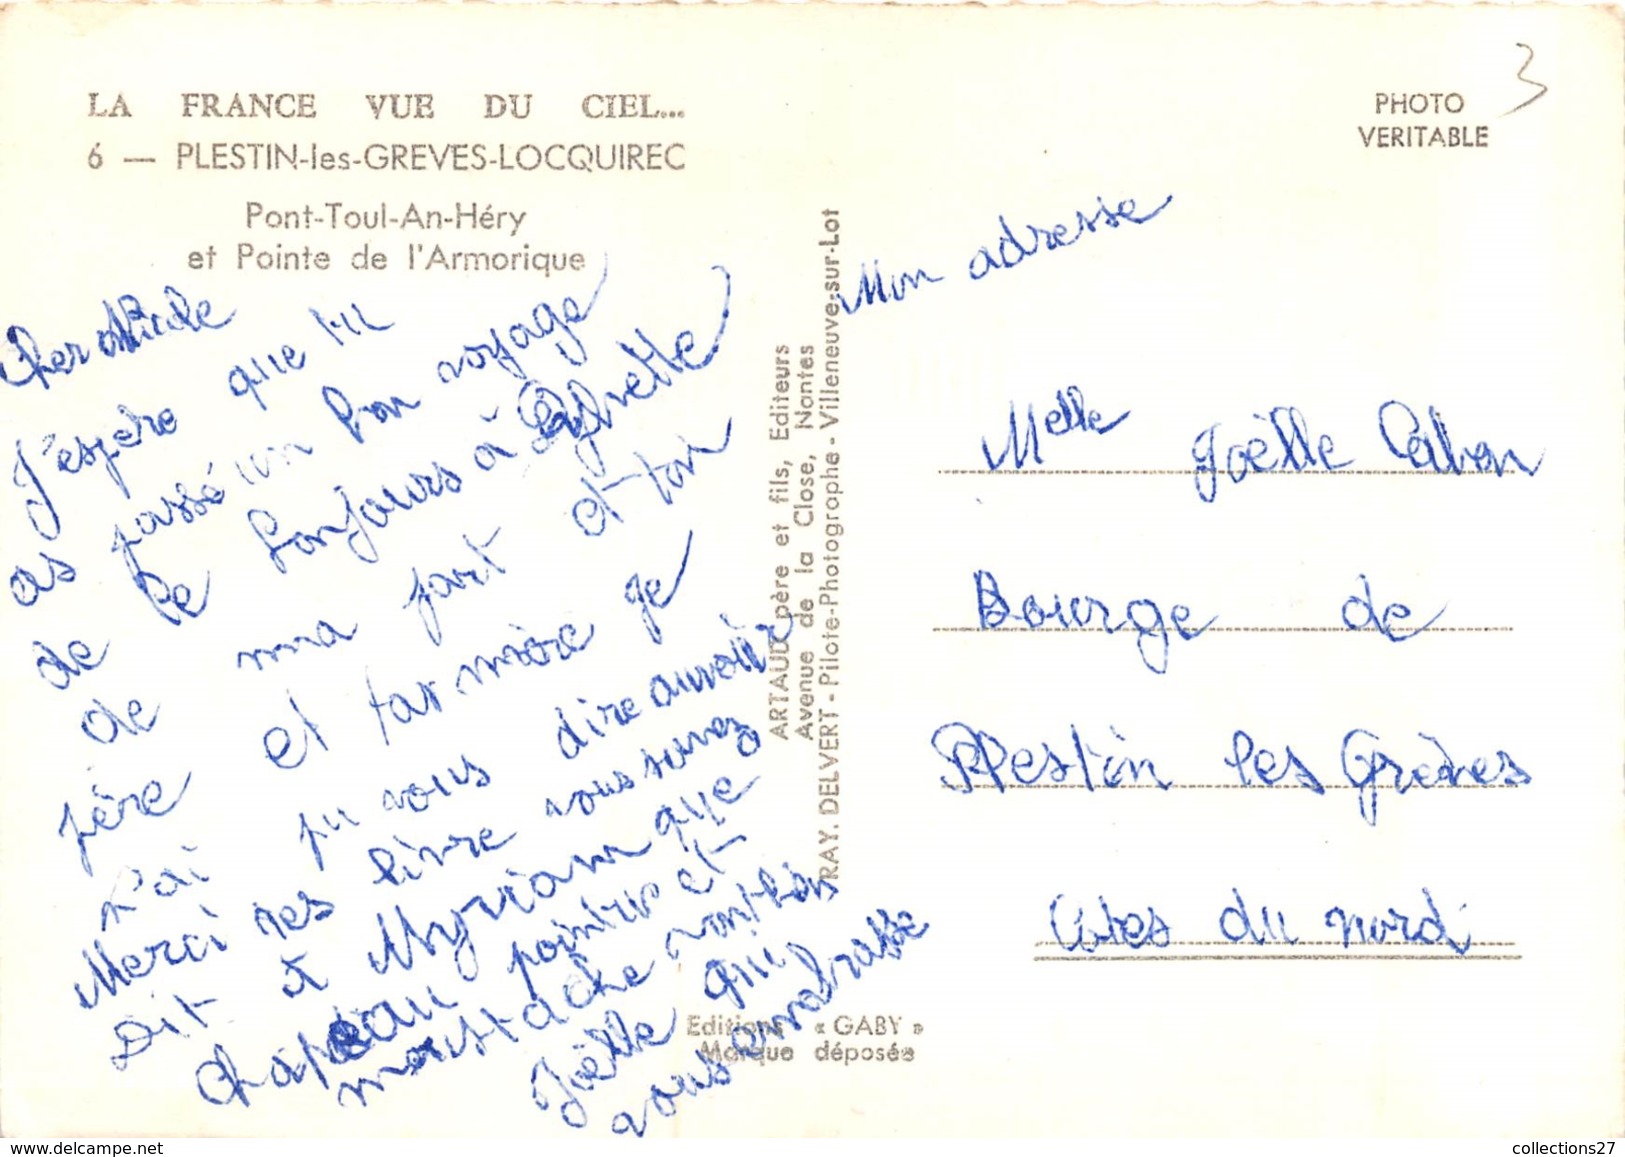 LA FRANCE VUE DU CIEL...
6 — PLESTIN-les-GREVES-LOCQUIREC
Pont-Toul-An-Héry
et Pointe de l'Armorique
Cher Nicole
J'espère que tu
as passé un bon voyage
de Le bonjours à Sylvette
de ma part et ton
père et tas mère je
n'ai pu vous dire auvoir
Merci des livre vous savez
Dit à Myriam que
Chapeau pointus et
moustache vont bis
Joëlle qui
vous embrasse
ARTAUD père et fils, Editeurs
Avenue de la Close, Nantes
RAY. DELVERT - Pilote-Photographe - Villeneuve-sur-Lot
Editions « GABY »
Marque déposée
PHOTO
VERITABLE
3
Mon adresse
Melle Joëlle Cabon
Bourge de
Plestin les Grèves
Côtes du nord
collections27